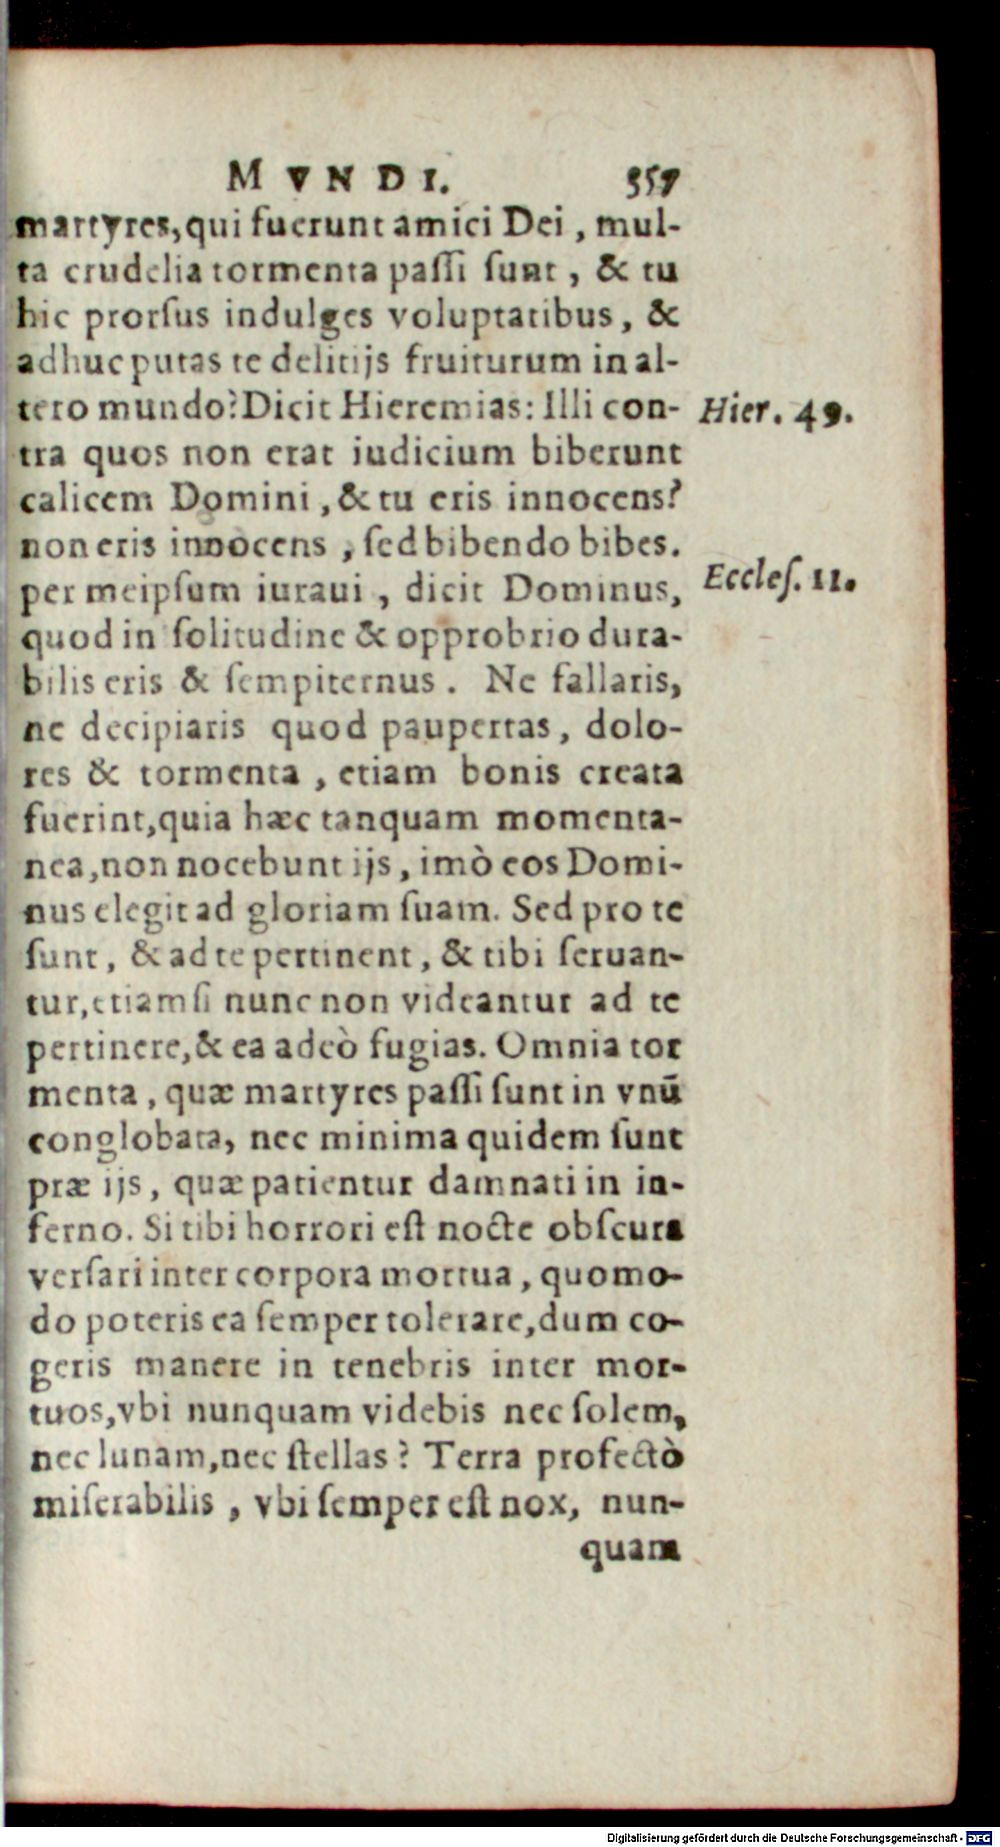 MVNDI. 357
martyres, qui fuerunt amici Dei, mul-
ta crudelia tormenta paſſi ſunt, & tu
hic prorſus indulges voluptatibus, &
adhuc putas te delitijs fruiturum in al-
tero mundo? Dicit Hieremias: Illi con-
Hier. 49.
tra quos non erat iudicium biberunt
calicem Domini, & tu eris innocens?
non eris innocens, ſed bibendo bibes.
per meipſum iuraui, dicit Dominus,
Eccleſ. 11.
quod in ſolitudine & opprobrio dura-
bilis eris & ſempiternus. Ne fallaris,
ne decipiaris quod paupertas, dolo-
res & tormenta, etiam bonis creata
fuerint, quia hæc tanquam momenta-
nea, non nocebunt ijs, imò eos Domi-
nus elegit ad gloriam ſuam. Sed pro te
ſunt, & ad te pertinent, & tibi ſeruan-
tur, etiamſi nunc non videantur ad te
pertinere, & ea adeò fugias. Omnia tor
menta, quæ martyres paſſi ſunt in vnū
conglobata, nec minima quidem ſunt
præ ijs, quæ patientur damnati in in-
ferno. Si tibi horrori eſt nocte obſcura
verſari inter corpora mortua, quomo-
do poteris ea ſemper tolerare, dum co-
geris manere in tenebris inter mor-
tuos, vbi nunquam videbis nec ſolem,
nec lunam, nec ſtellas? Terra profectò
miſerabilis, vbi ſemper eſt nox, nun-
quam
Digitalisierung gefördert durch die Deutsche Forschungsgemeinschaft - DFG